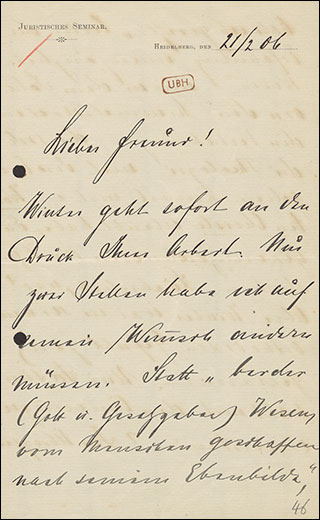 JURISTISCHES SEMINAR.
HEIDELBERG, DEN 21/2 06
UBH
Lieber Freund!
Winter geht sofort an den
Druck Ihrer Arbeit. Nur
zwei Stellen habe ich auf
seinen Wunsch ändern
müssen. Statt „beider
(Gott u. Gesetzgeber) Wesen,
vom Menschen geschaffen
nach seinem Ebenbilde,“
46